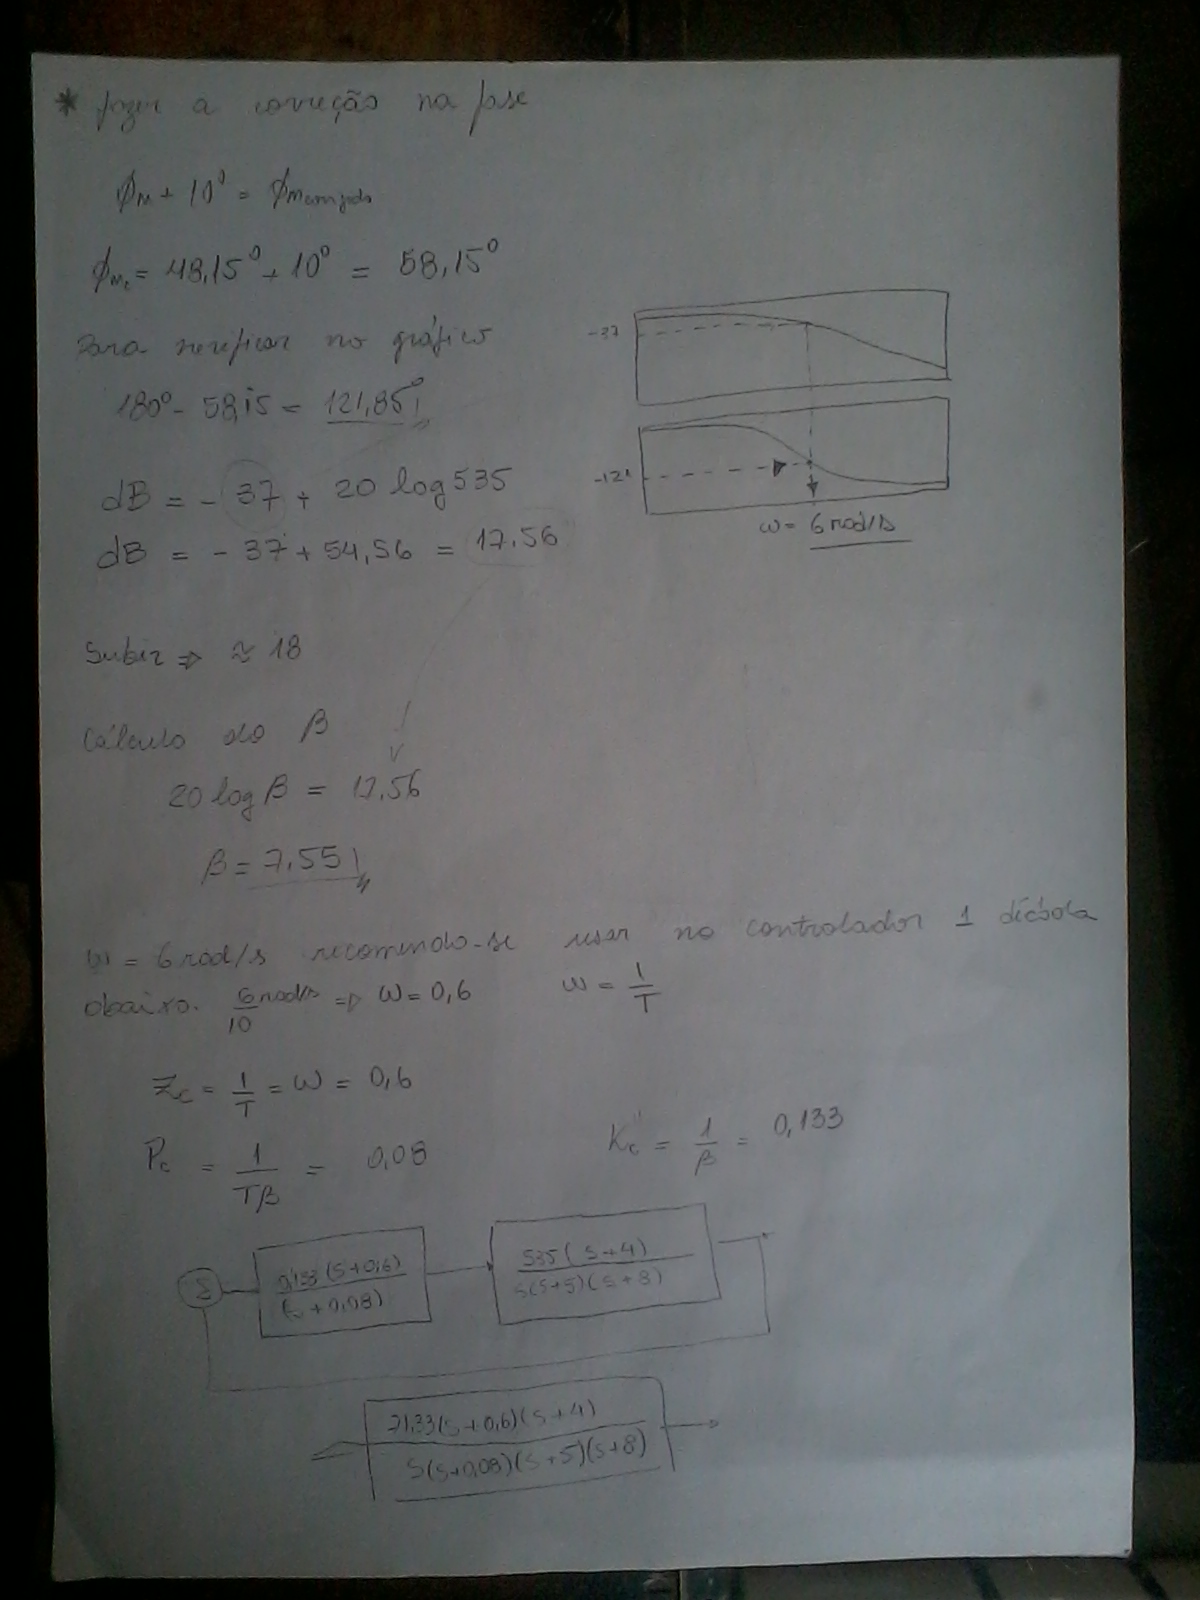 * fazer a correção na fase
ϕM + 10° = ϕMcorrigida
ϕMc = 48,15° + 10° = 58,15°
Para verificar no gráfico
180° - 58,15 = 121,85°
dB = - 37 + 20 log 535
dB = - 37 + 54,56 = 17.56
-37
-121
ω = 6 rad/s
Subir ⇒ ≈ 18
Cálculo do β
20 log β = 17,56
β = 7,55
ω = 6 rad/s recomenda-se usar no controlador 1 década
abaixo. 6 rad/s / 10 ⇒ ω = 0,6 ω = 1/T
Zc = 1/T = ω = 0,6
Pc = 1/Tβ = 0,08 Kc = 1/β = 0,133
Σ 0,133 (s+0,6) / (s+0,08) 535 (s+4) / s(s+5)(s+8)
71,33(s+0,6)(s+4) / s(s+0,08)(s+5)(s+8)